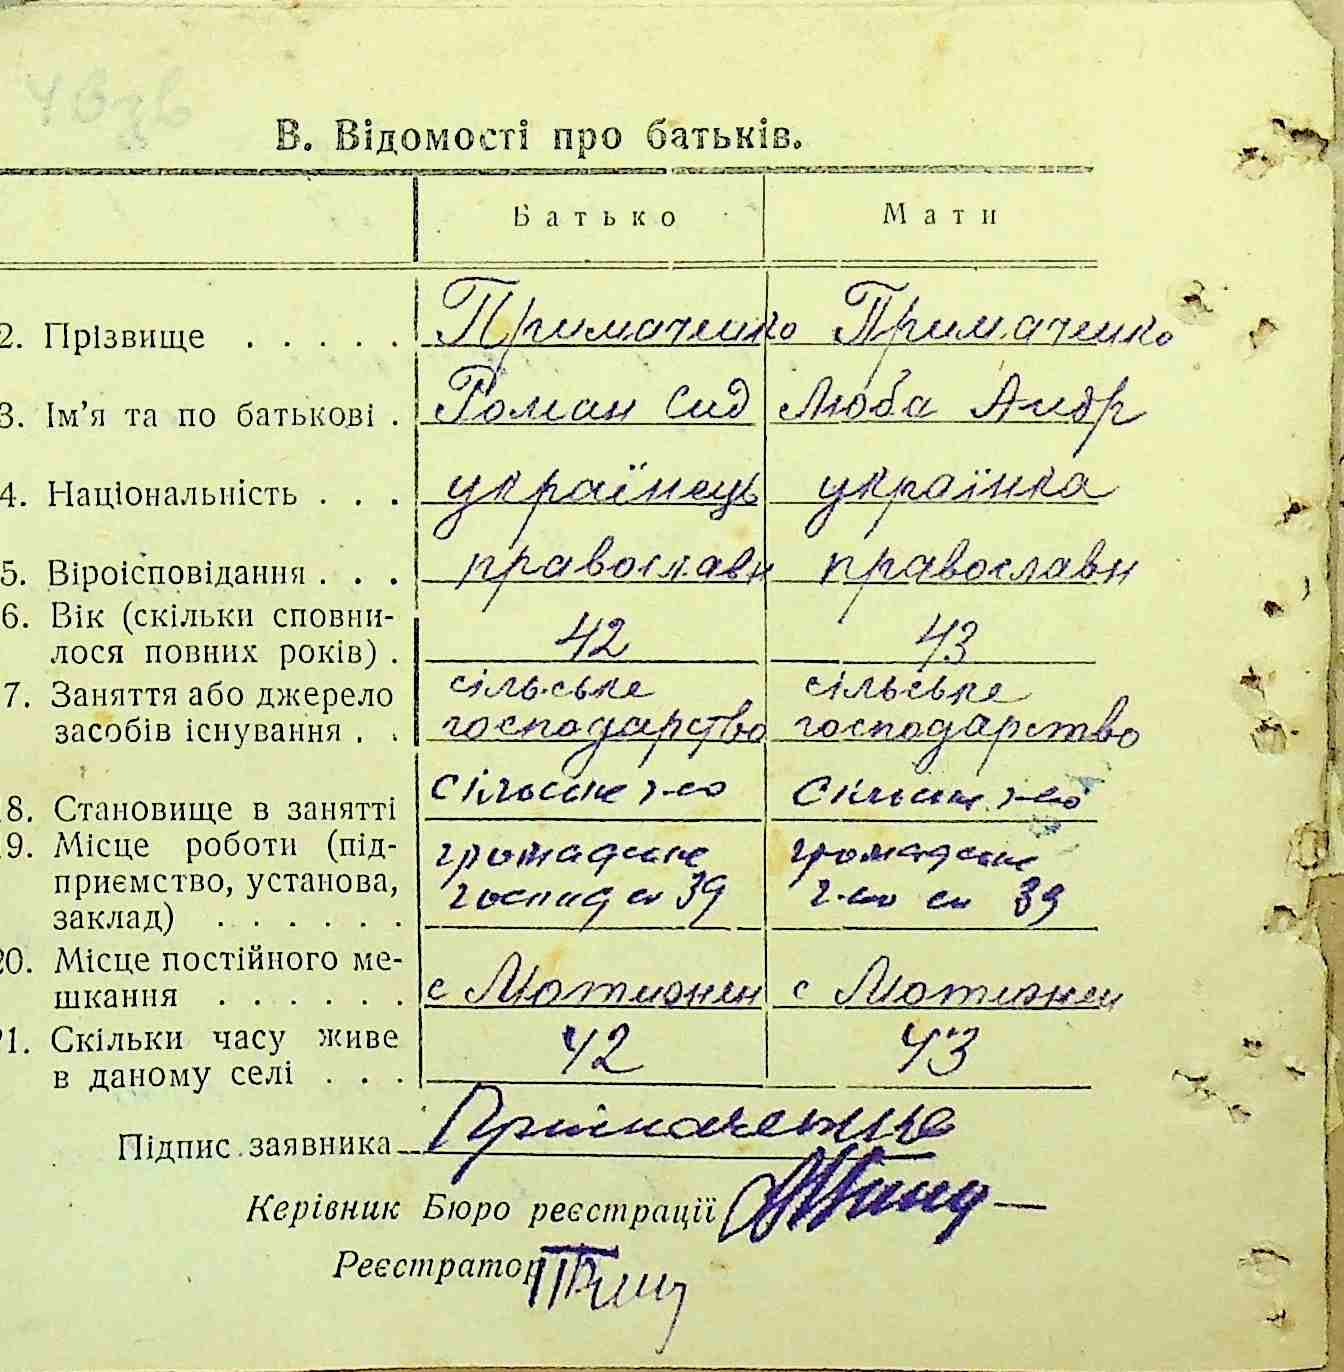 В. Відомості про батьків.
Батько Мати
2. Прізвище . . . . . Примаченко Примаченко
3. Ім’я та по батькові . Роман Сид Люба Андр
4. Національність . . . українець українка
5. Віроісповідання . . . православн православн
6. Вік (скільки сповни-
лося повних років) . 42 43
7. Заняття або джерело сільське сільське
засобів існування . . господарство господарство
8. Становище в занятті сільське г-во сільське г-во
9. Місце роботи (під- громадське громадське
приємство, установа, господ 39 г-во 39
заклад) . . . . . .
20. Місце постійного ме-
шкання . . . . . . с Мотижен с Мотижен
21. Скільки часу живе
в даному селі . . . 42 43
Підпис заявника Примаченко
Керівник Бюро реєстрації
Реєстратор